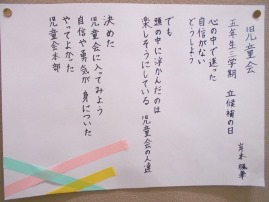 児童会
岸本
五年生三学期 立候補の日
心の中で迷った
自信がない
どうしよう
でも
頭の中に浮かんだのは
楽しそうにしている 児童会の人達
決めた
児童会に入ってみよう
自信や勇気が身についた
やってよかった
児童会本部